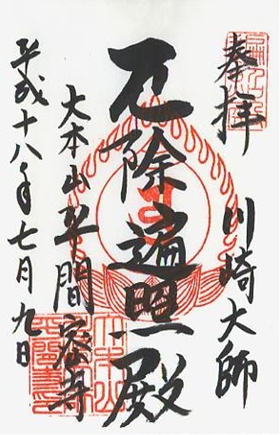 奉拝
川崎大師
厄除遍照殿
大本山平間密寺
平成十八年七月九日